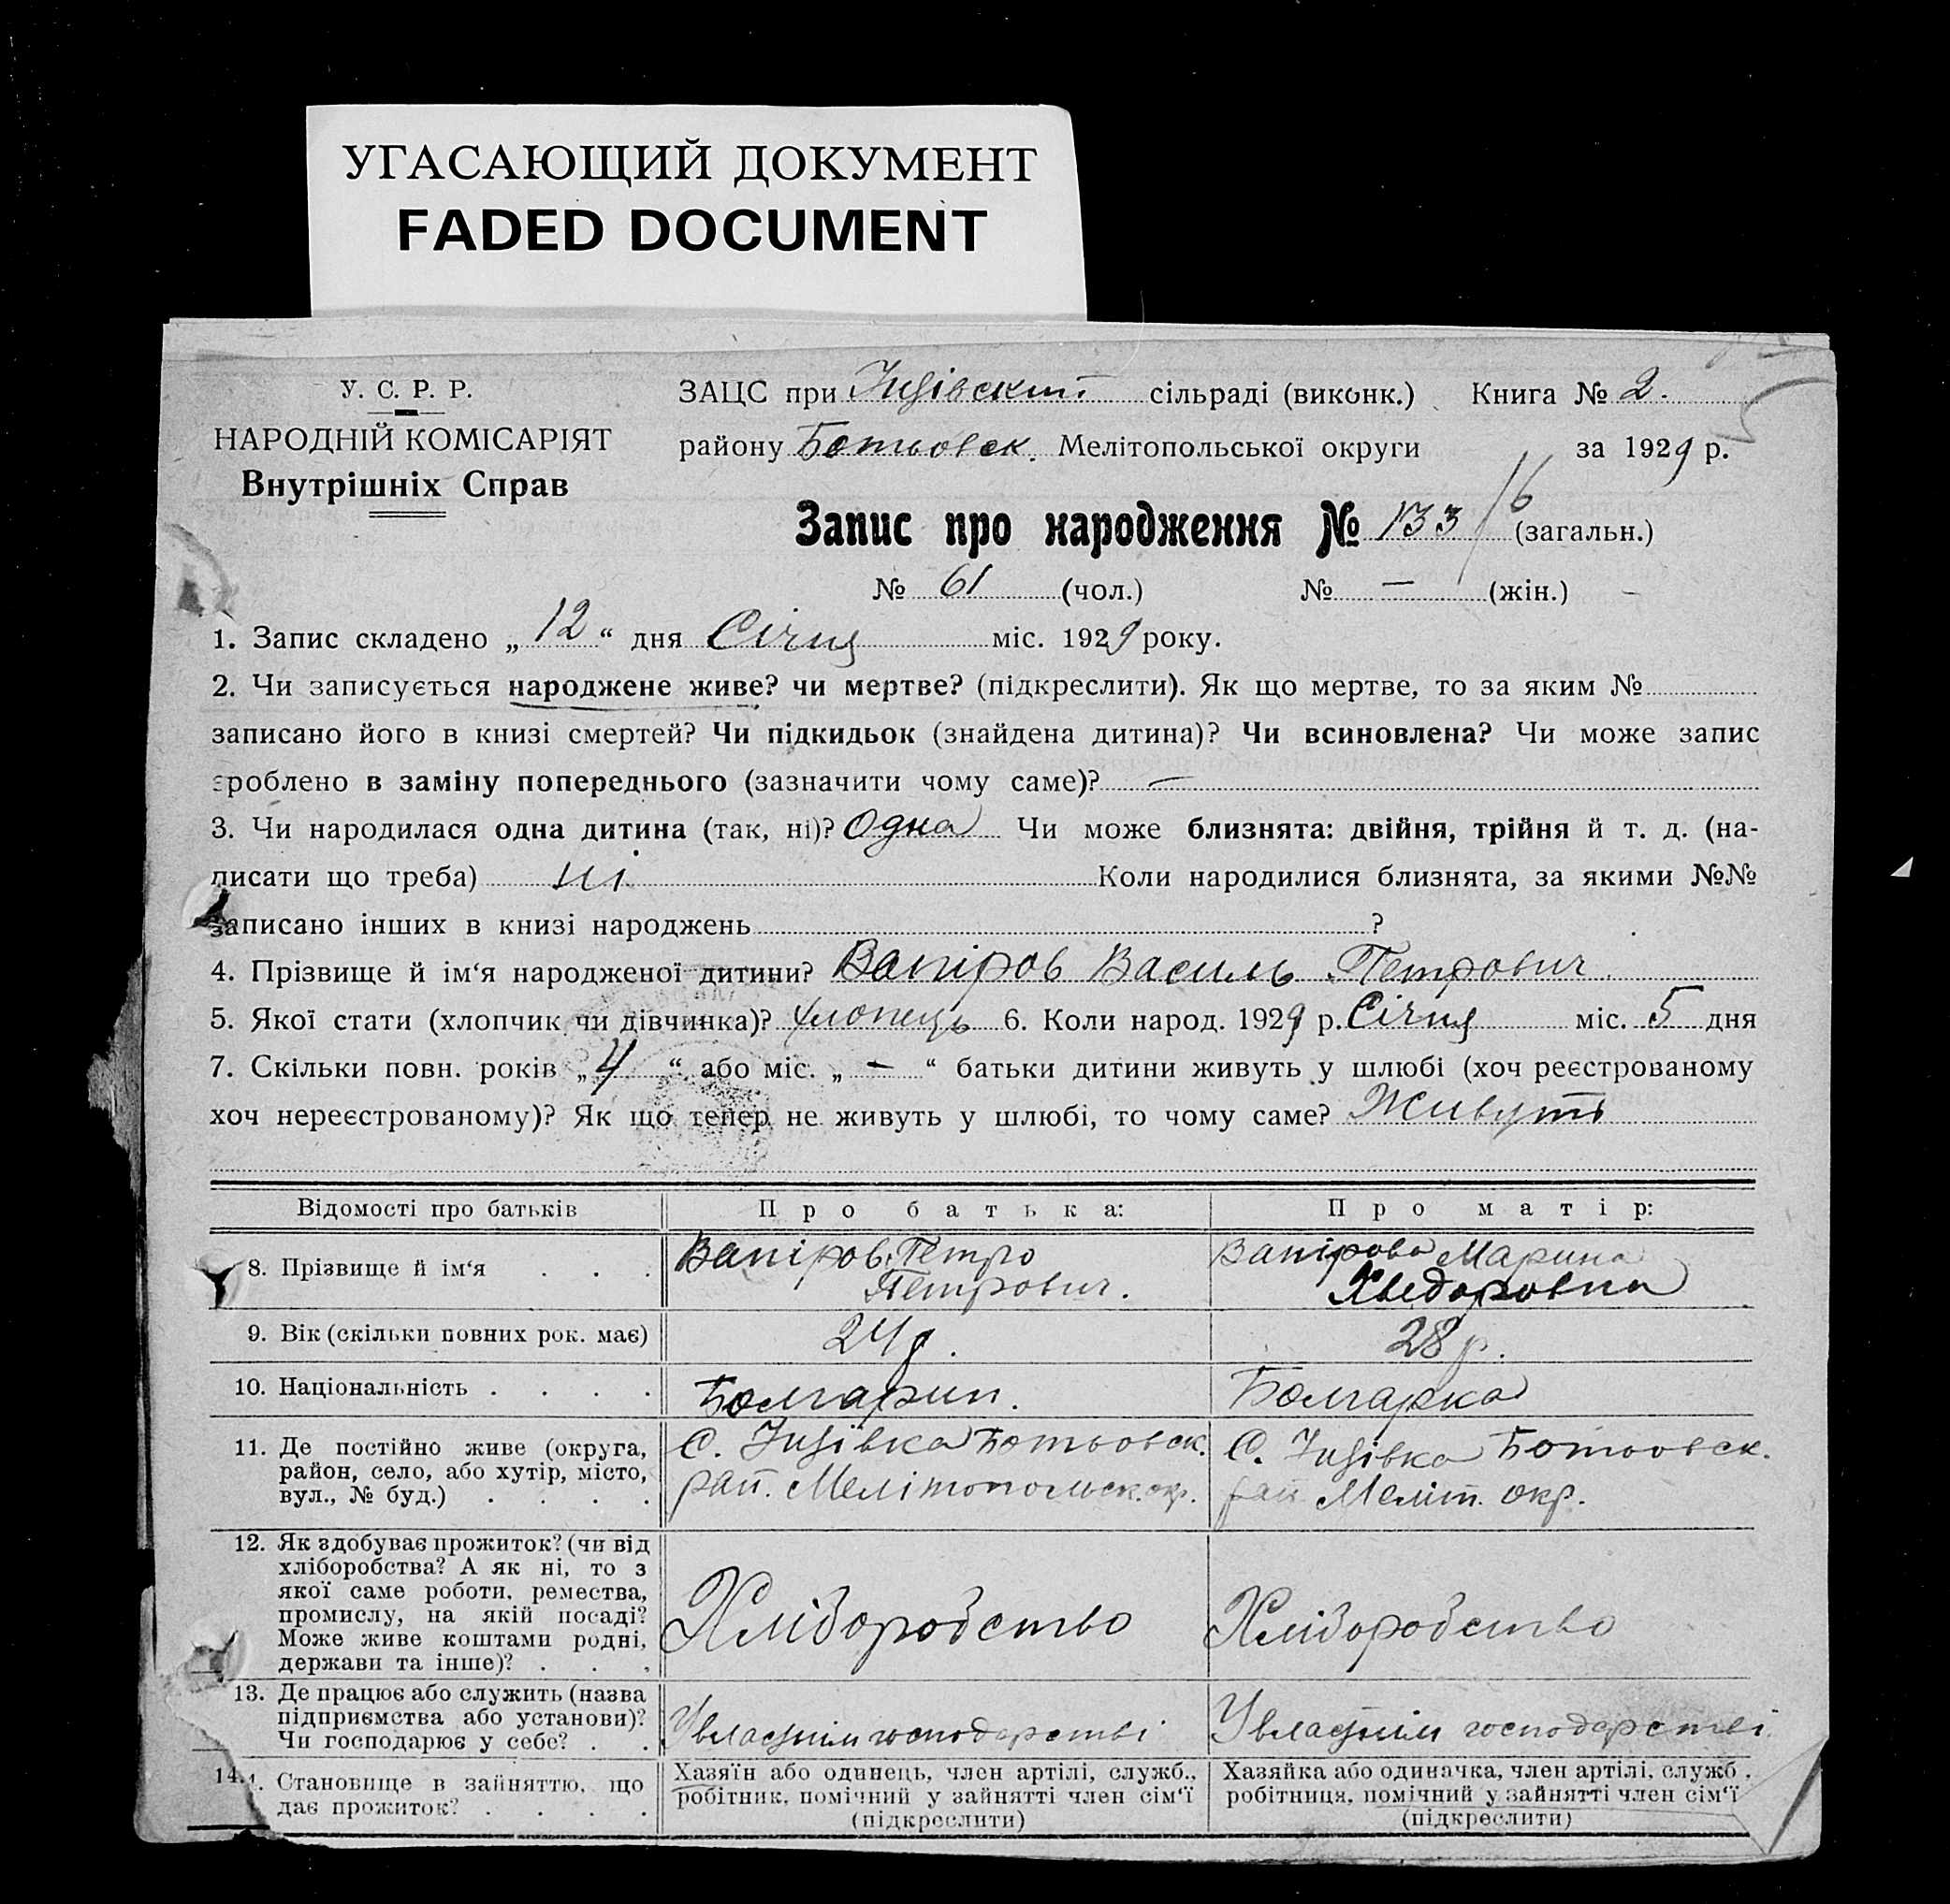 УГАСАЮЩИЙ ДОКУМЕНТ
FADED DOCUMENT
У. С. Р. Р.
НАРОДНІЙ КОМІСАРІЯТ
Внутрішніх Справ
ЗАЦС при Інзівский сільраді (виконк.) Книга № 2.
району Ботьовск. Мелітопольської округи за 1929 р.
Запис про народження № 133/6 (загальн.)
№ 61 (чол.) № — (жін.)
1. Запис складено „ 12 “ дня Січня міс. 1929 року.
2. Чи записується народжене живе? чи мертве? (підкреслити). Як що мертве, то за яким №
записано його в книзі смертей? Чи підкидьок (знайдена дитина)? Чи всиновлена? Чи може запис
зроблено в заміну попереднього (зазначити чому саме)? —
3. Чи народилася одна дитина (так, ні)? Одна Чи може близнята: двійня, трійня й т. д. (на-
писати що треба) ні Коли народилися близнята, за якими №№
записано інших в книзі народжень ?
4. Прізвище й ім‘я народженої дитини? Вапіров Василь Петрович
5. Якої стати (хлопчик чи дівчинка)? хлопець 6. Коли народ. 1929 р. Січня міс. 5 дня
7. Скільки повн. років „ 4 “ або міс. „ — “ батьки дитини живуть у шлюбі (хоч реєстрованому
хоч нереєстрованому)? Як що тепер не живуть у шлюбі, то чому саме? Живуть
Відомості про батьків Про батька: Про матір:
8. Прізвище й ім‘я . . . Вапіров Петро Петрович. Вапірова Марина Хведоровна
9. Вік (скільки повних рок. має) 24 р. 28 р.
10. Національність . . . . Болгарин. Болгарка
11. Де постійно живе (округа, С. Інзівка Ботьовск. С. Інзівка Ботьовск.
район, село, або хутір, місто, рай. Мелітопольск. окр. рай Меліт. окр.
вул., № буд.) . . . .
12. Як здобуває прожиток? (чи від
хліборобства? А як ні, то з
якої саме роботи, ремества,
промислу, на якій посаді? Хліборобство Хліборобство
Може живе коштами родні,
держави та інше)? . . .
13. Де працює або служить (назва
підприємства або установи)? У власнім господарстві У власнім господарстві
Чи господарює у себе? . .
14. Становище в зайняттю, що Хазяїн або одинець, член артілі, служб., Хазяйка або одиначка, член артілі, служб.,
дає прожиток? . . . . робітник, помічний у зайнятті член сім‘ї робітниця, помічний у зайнятті член сім‘ї
(підкреслити) (підкреслити)